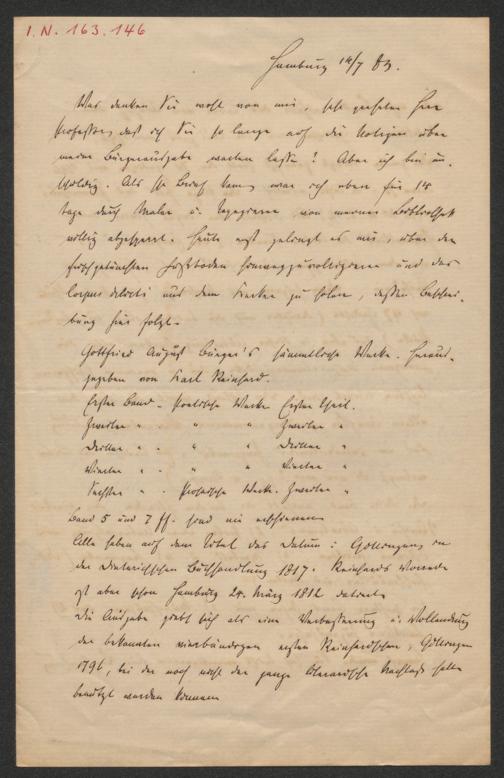 I.N. 163.146
Hamburg 14/7 83.
Was denken Sie wohl von mir, sehr geehrter Herr
Professor, daß ich Sie so lange auf die Notizen über
meine Bürgerausgabe warten lasse? Aber ich bin un-
schuldig. Als Ihr Brief kam, war ich eben für 14
Tage durch Maler u. Tapezierer von meiner Bibliothek
völlig abgesperrt. Heute erst gelingt es mir, über den
frischgetünchten Fußboden hinwegzuvoltigieren und das
corpus delicti aus dem zu holen, dessen Beschrei-
bung hier folgt.
Gottfried August Bürger's sämmtliche Werke. Heraus-
gegeben von Karl Reinhard.
Erster Band. Poetische Werke Erster Theil.
Zweiter " . " " Zweiter "
Dritter " . " " Dritter "
Vierter " . " " Vierter "
Sechster " . Prosaische Werke. Zweiter "
Band 5 und 7 ff. sind nie erschienen
Alle haben auf dem Titel das Datum: Göttingen, in
der Dieterichschen Buchhandlung 1817. Reinhards Vorrede
ist aber schon Hamburg 24. März 1812 datirt.
Die Ausgabe giebt sich als eine Verbesserung u. Vollendung
der bekannten vierbändigen ersten Reinhardschen, Göttingen
1796, bei der noch nicht der ganze literarische Nachlaß hatte
benutzt werden können